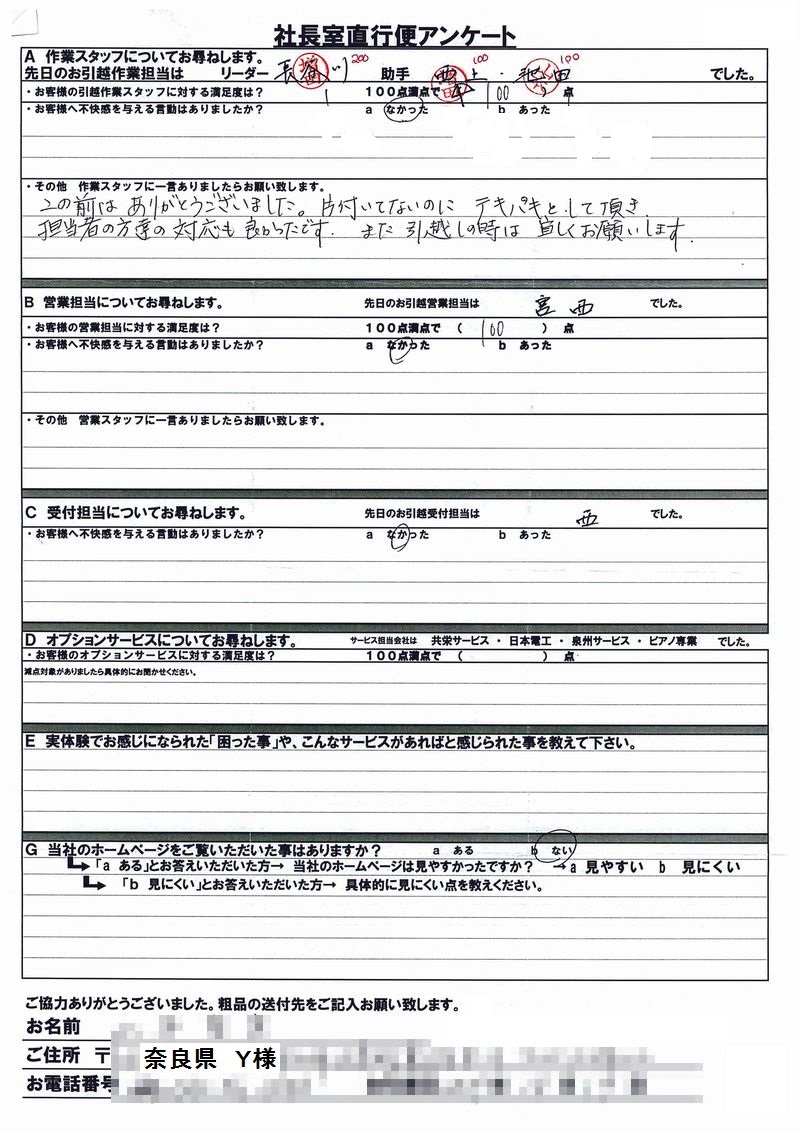 社長室直行便アンケート
A 作業スタッフについてお尋ねします。
先日のお引越作業担当は リーダー 長谷川 200 助手 西上 100 ・ 池田 100 でした。
・お客様の引越作業スタッフに対する満足度は? 100点満点で ( 100 ) 点
・お客様へ不快感を与える言動はありましたか? a なかった b あった
・その他 作業スタッフに一言ありましたらお願い致します。
この前は ありがとうございました。片付いてないのに テキパキとして頂き、
担当者の方達の対応も良かったです。 また引越しの時は宜しくお願いします。
B 営業担当についてお尋ねします。 先日のお引越営業担当は 宮西 でした。
・お客様の営業担当に対する満足度は? 100点満点で ( 100 ) 点
・お客様へ不快感を与える言動はありましたか? a なかった b あった
・その他 営業スタッフに一言ありましたらお願い致します。
C 受付担当についてお尋ねします。 先日のお引越受付担当は 西 でした。
・お客様へ不快感を与える言動はありましたか? a なかった b あった
D オプションサービスについてお尋ねします。 サービス担当会社は 共栄サービス ・ 日本電工 ・ 泉州サービス ・ ピアノ専業 でした。
・お客様のオプションサービスに対する満足度は? 100点満点で ( ) 点
減点対象がありましたら具体的にお聞かせください。
E 実体験でお感じになられた「困った事」や、こんなサービスがあればと感じられた事を教えて下さい。
G 当社のホームページをご覧いただいた事はありますか? a ある b ない
「a ある」とお答えいただいた方→ 当社のホームページは見やすかったですか? →a 見やすい b 見にくい
「b 見にくい」とお答えいただいた方→ 具体的に見にくい点を教えください。
ご協力ありがとうございました。粗品の送付先をご記入お願い致します。
お名前
ご住所 〒 奈良県 Y様
お電話番号